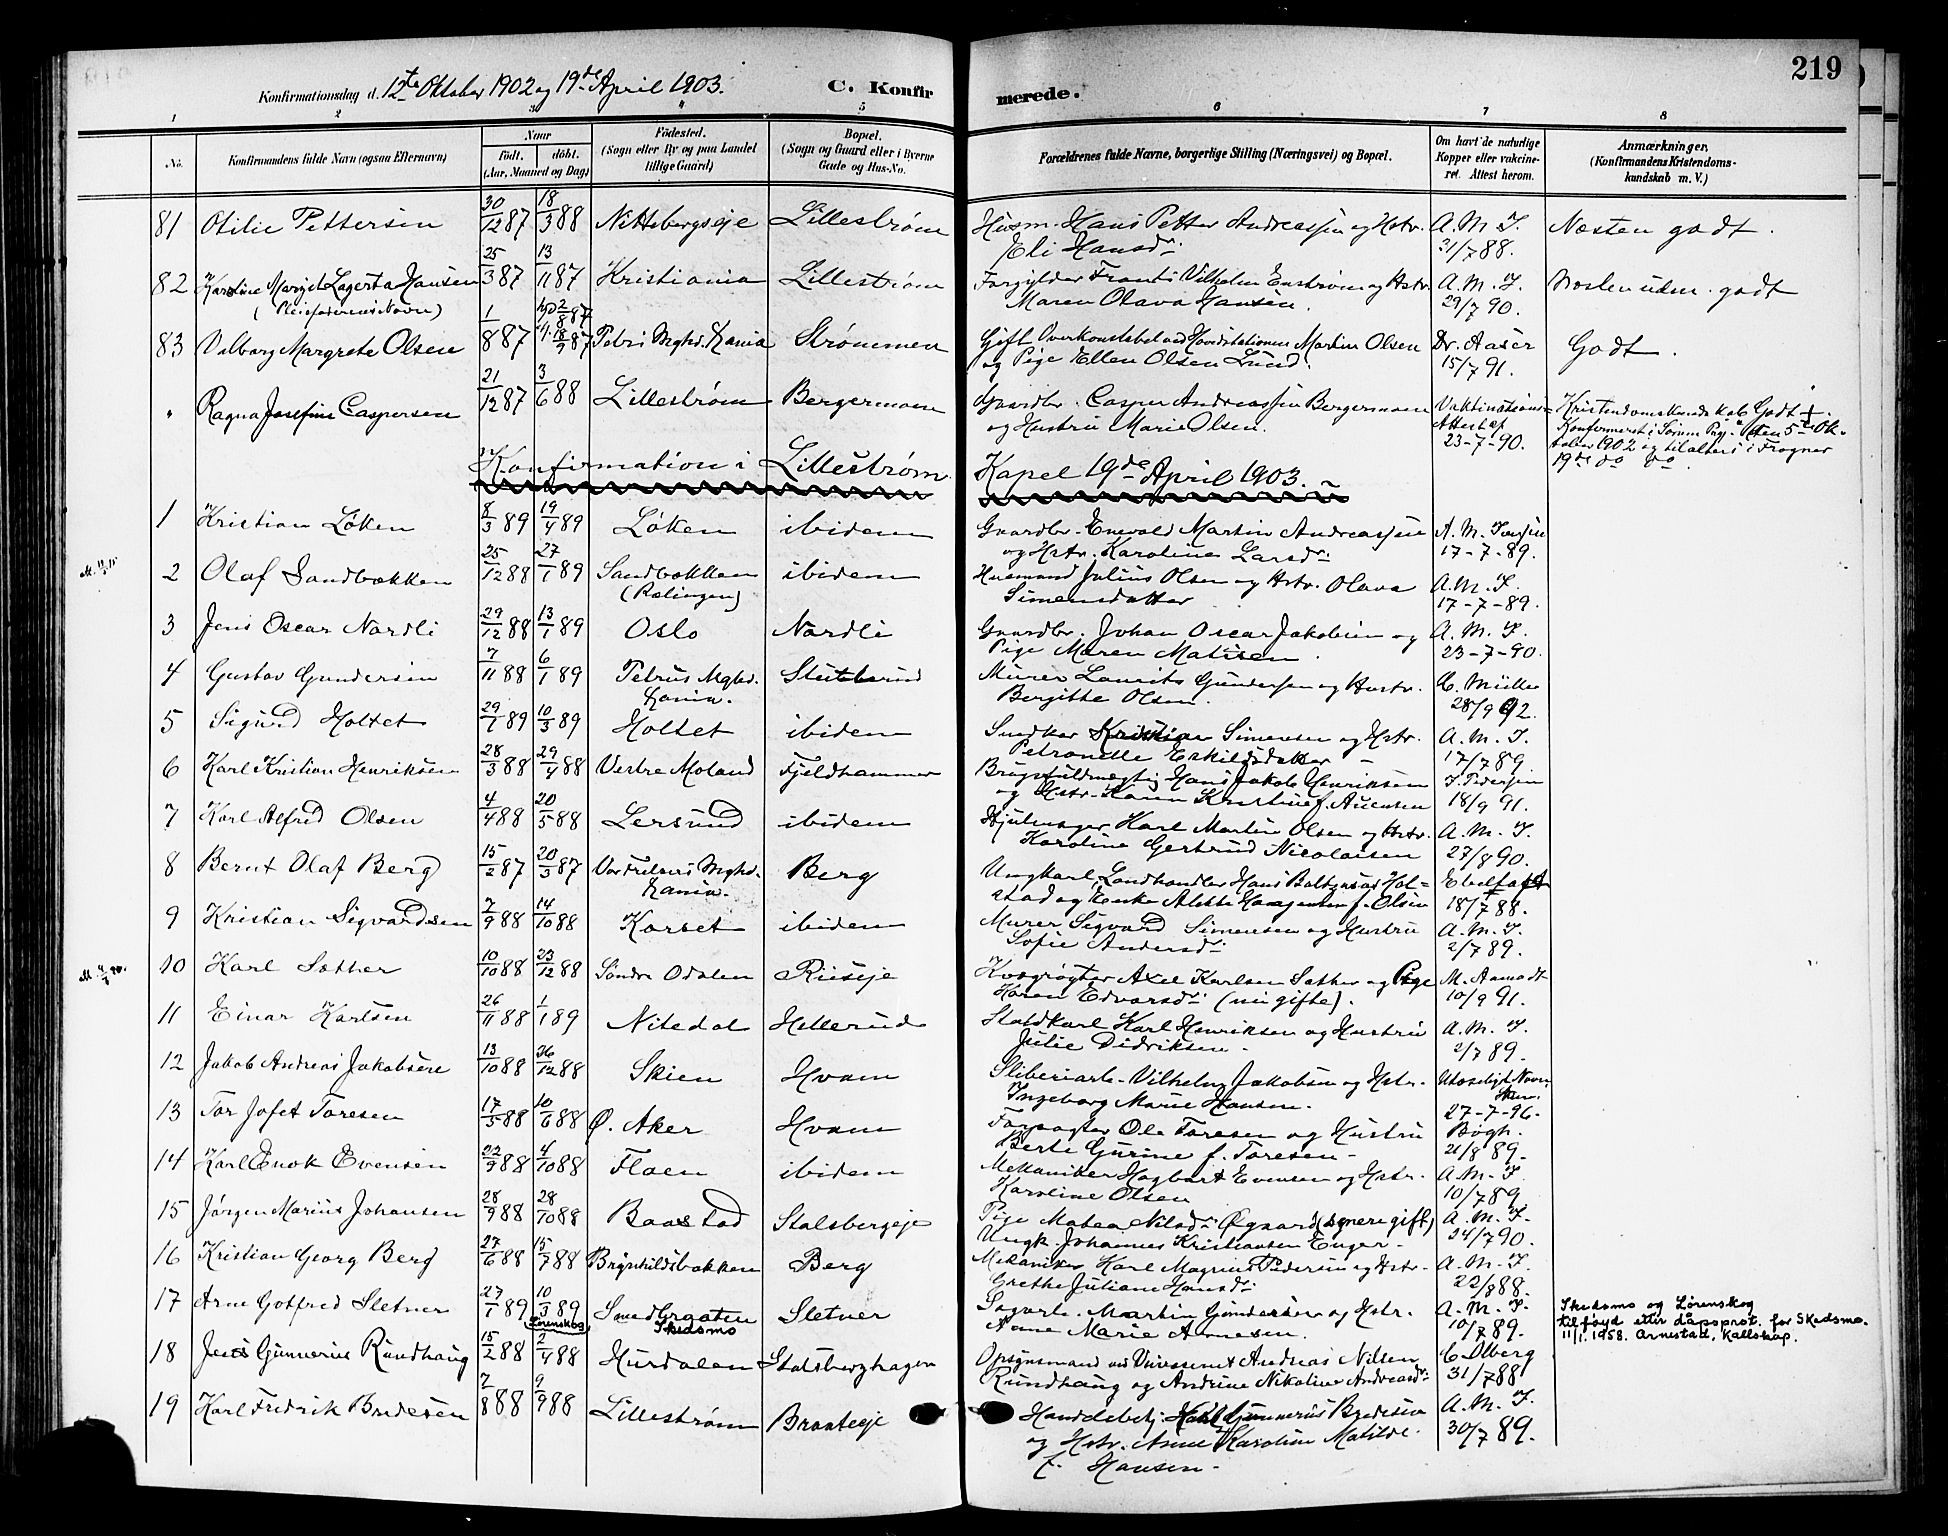 219
Konfirmationsdag d. 12te Oktober 1902 og 19de April 1903. C. Konfir merede.
1 2 3 4 5 6 7 8
No. Konfirmandens fulde Navn (ogsaa Efternavn) Naar født. døbt. (Aar, Maaned og Dag) Fødested. (Sogn eller By og paa Landet tillige Gaard) Bopæl. (Sogn og Gaard eller i Byerne Gade og Hus-No. Forældrenes fulde Navne, borgerlige Stilling (Næringsvei) og Bopæl. Om havt de naturlige Kopper eller vakcineret. Attest herom. Anmærkninger. (Konfirmandens Kristendomskundskab m. V.)
81 Otilie Pettersen 30/12 87 18/3 88 Nittebergseje Lillestrøm Husm. Hans Petter Andreassen og Hstr. A. M. I. Næsten godt.
Eli Hansdr. 31/7 88.
82 Karoline Margit Lagerta Hansen 25/3 87 13/11 87 Kristiania Lillestrøm Forgylder Frants Vilhelm Enstrøm og Hstr. A. M. I. Næsten udm. godt
(Pleiefaderens Navn) Maren Olava Hansen. 29/7 90.
83 Valborg Margrete Olsen 1/8 87 hjd 2/8 87 18/9 87 Petri Mghd. Kania Strømmen Gift Overkonstabel ved Hovedstationen Martin Olsen Dr. Aaser Godt.
og Pige Ellen Olsen Lund. 15/7 91.
" Ragna Josefine Caspersen 21/12 87 3/6 88 Lillestrøm Bergermoen Gaardbr. Casper Andreassen Bergermoen Vaktinations= Kristendomskundskab Godt +.
og Hustru Marie Olsen. Attest af Konfirmeret i Sørum Pgj. den 5te Ok-
23-7-90. tober 1902 og til alters i Frogner
19de do do.
Konfirmation i Lillestrøm Kapel 19de April 1903.
1 Kristian Løken 8/3 89 19/4 89 Løken ibidem Gaardbr. Enevald Martin Andreassen A. M. Iversen
og Hstr. Karoline Larsdr. 17-7-89.
2 Olaf Sandbækken 25/12 88 27/1 89 Sandbækken ibidem Husmand Julius Olsen og Hstr. Olava A. M. I.
(Rælingen) Simensdatter 17-7-89.
3 Jens Oscar Nordli 29/12 88 13/1 89 Oslo Nordli Gaardbr. Johan Oscar Jakobsen og A. M. I.
Pige Maren Matisen. 23-7-90.
4 Gustav Gundersen 7/11 88 6/1 89 Petrus Mghd. Kania. Stubberud Murer Laurits Gundersen og Hustr. C. Müller
Bergithe Olsen. 28/9 92.
5 Sigurd Holtet 29/1 89 10/3 89 Holtet ibidem Snedker Kristian Simensen og Hstr. A. M. I.
Petronelle Eskildsdatter 17/7 89.
6 Karl Kristian Henriksen 28/3 88 29/4 88 Vestre Moland Fjeldhammer Brugsfuldmægtig Hans Jakob Henriksen I. Pedersen
og Hstr. Karen Kristine f. Auensen 18/9 91.
7 Karl Alfred Olsen 4/4 88 20/5 88 Lersund ibidem Hjulmager Karl Martin Olsen og Hstr. A. M. I.
Karoline Gertrud Nicolaisen 27/8 90.
8 Bernt Olaf Berg 15/2 87 20/3 87 Vor Frelsers Mghd. Kania. Berg Ungkarl, Landhandler Hans Baltzersen Hol=
stad og Enke Alette Haagensen f. Olsen 18/7 88.
9 Kristian Sigvardsen 7/9 88 14/10 88 Korset ibidem Murer Sigvard Simensen og Hustru A. M. I.
Sofie Andersdr. 2/7 89.
10 Karl Sæther 10/10 88 23/12 88 Søndre Odalen Riiseje Kvægrøgter Axel Karlsen Sæther og Pige M. Aamodt
Karen Edvarsdr. (nu gifte). 10/9 91.
11 Einar Karlsen 26/11 88 1/1 89 Nitedal Hellerud Staldkarl Karl Henriksen og Hustru A. M. I.
Julie Didriksen. 2/7 89.
12 Jakob Andreas Jakobsen 13/10 88 26/12 88 Skien Hvam Sliberiarb. Vilhelm Jakobsen og Hstr. Utæseligt Navn,
Ingeborg Marie Hansen. Skien. 27-7-96.
13 Tor Jofet Toresen 17/3 88 10/6 88 Ø. Aker Hvam Forpagter Ole Toresen og Hustru Bøgh.
Berte Gurine f. Toresen 21/8 89.
14 Karl Enok Evensen 22/9 88 4/10 88 Floen ibidem Mekaniker Hagbart Evensen og Hstr. A. M. I.
Karoline Olsen 10/7 89
15 Jørgen Marius Johansen 28/9 88 28/10 88 Baastad Stalsbergeje Pige Matea Nilsdr. Øgaard (senere gift) A. M. I.
Ungk. Johannes Kristiansen Enger 24/7 90.
16 Kristian Georg Berg 27/6 88 15/7 88 Brynhildsbakken Berg Mekaniker Karl Magnus Pedersen og Hstr. A. M. I.
Grethe Juliane Hansdr. 22/8 88.
17 Arne Gotfred Sletner 27/1 89 10/3 89 Smedbraaten Sletner Sagarb. Martin Gundersen og Hstr. A. M. I. Skedsmo og Lørenskog
Lørenskog Skedsmo Anne Marie Arnesen. 10/7 89. tilføyd etter dåpsprot. for Skedsmo.
11/1. 1958. Arnestad, kallskap.
18 Jens Gunnerius Rundhaug 15/2 88 2/4 88 Hurdalen Stalsberghagen Opsynsmand ved Veivæsenet Andreas Nilsen C. Olberg
Rundhaug og Andrine Nikoline Andreasdr. 31/7 88
19 Karl Fredrik Bredesen 7/8 88 9/9 88 Lillestrøm Braateeje Handelsbetj. Karl Gunnerius Bredesen A. M. I.
og Hstr. Anne Karoline Matilde 30/7 89.
f. Hansen.